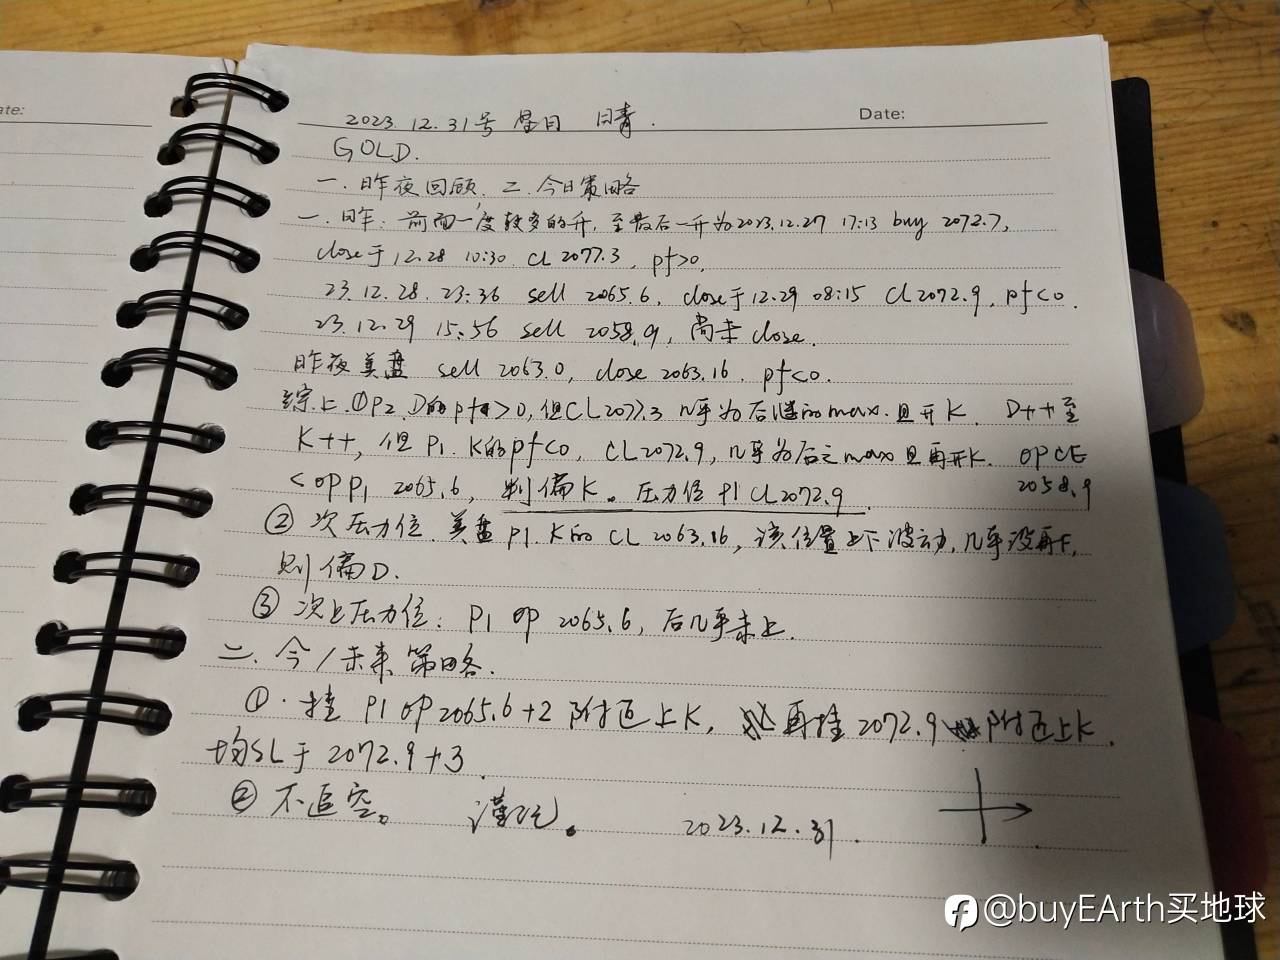 ate:
Date:
2023.12.31号 星日 晴.
GOLD.
一.昨夜回顾, 二.今日策略
一.昨: 前面一度较多的升, 至最后一升为2023.12.27 17:13 buy 2072.7,
close于12.28 10:30 CL2077.3, pf>0,
23.12.28.23:36 sell 2065.6, close于12.29 08:15 CL2072.9, pf<0.
23.12.29 15:56 sell 2058.9, 尚未close.
昨夜美盘 sell 2063.0, close 2063.16. pf<0.
综上.①P2.D的pf>0,但CL2077.3几乎为后的max.且开K. D++至
K++, 但P1.K的pf<0, CL2072.9, 几乎为后之max且再开K. OPCE
<OPP1 2065.6, 判偏K。压力位P1 CL2072.9. 2058.9
②次压力位.美盘P1.K的CL2063.16, 该位置上下波动,几乎没再下,
则偏D.
③次上压力位: P1 OP 2065.6, 后几乎未上.
二.今/未来策略.
①.挂P1 OP2065.6+2附近上K, 再挂2072.9附近上K.
均SL于2072.9+3.
②不追空。 谨记。 2023.12.31.
@buyEArth买地球